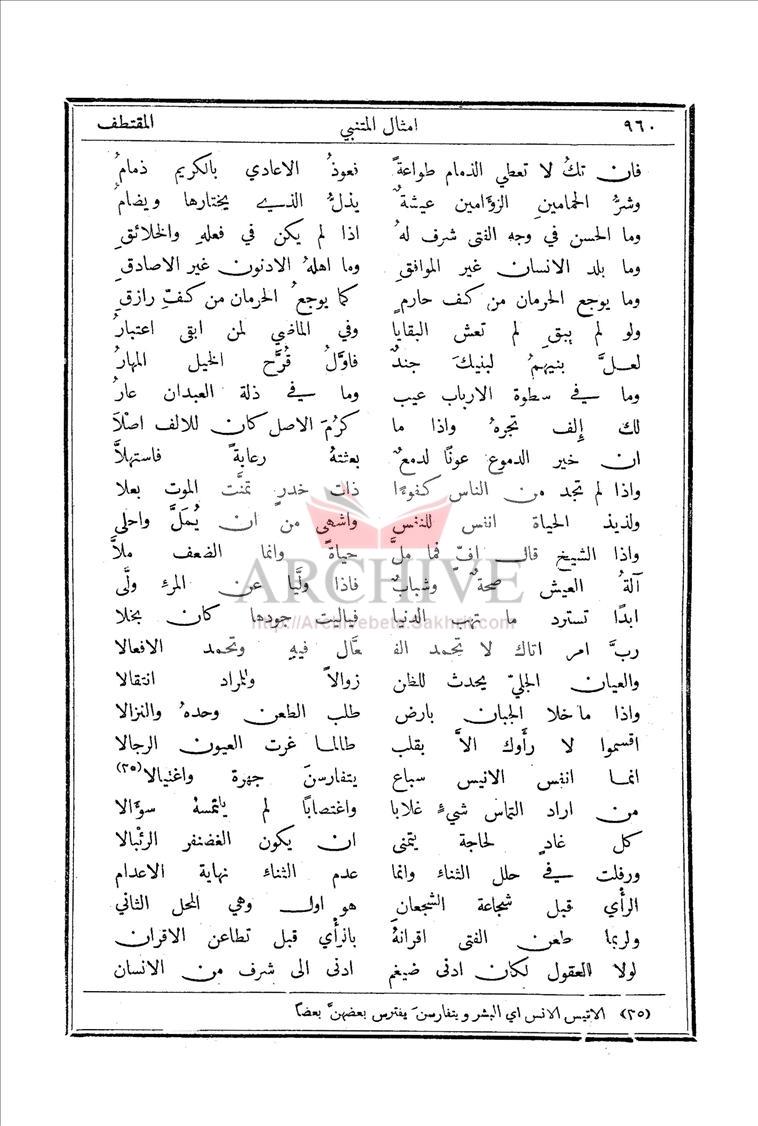 ٩٦٠ امثال المتنبي المقتطف
فان تكُ لا تعطي الذمام طواعةً فعوذُ الاعادي بالكريم ذمامُ
وشرُّ الحمامينِ الزؤامين عيشةٌ يذلُّ الذي يختارها ويضامُ
وما الحسن في وجه الفتى شرف لهُ اذا لم يكن في فعلهِ والخلائقِ
وما بلد الانسان غير الموافقِ وما اهلهُ الادنون غير الاصادقِ
وما يوجع الحرمان من كف حارمٍ كما يوجعُ الحرمان من كفّ رازقِ
ولو لم يبقِ لم تعش البقايا وفي الماضي لمن ابقى اعتبارُ
لعلَّ بنيهمُ لبنيكَ جندٌ فاوَّلُ قُرَّح الخيل المهارُ
وما في سطوة الارباب عيب وما في ذلة العبدان عارُ
لك إِلف تجرهُ واذا ما كرُمَ الاصل كان للالف اصلاَ
ان خير الدموع عونًا لدمعٌ بعثتهُ رعايةً فاستهلاَّ
واذا لم تجد من الناس كفوءًا ذات خدرٍ تمنَّت الموت بعلا
ولذيذ الحياة انفس للنفس واشهى من ان يُمَلَّ واحلى
واذا الشيخ قال افّ فما ملَّ حياةً وانما الضعف ملاَّ
آلةُ العيش صحةٌ وشبابٌ فاذا ولَّيا عن المرء ولَّى
ابدًا تسترد ما تهب الدنيا فياليت جودها كان بخلا
ربَّ امر اتاك لا تحمد الفـ ـعَّال فيهِ وتحمد الافعالا
والعيان الجليّ يحدث للظن زوالاً والمراد انتقالا
واذا ما خلا الجبان بارض طلب الطعن وحدهُ والنزالا
اقسموا لا رأوك الاَّ بقلب طالما غرت العيون الرجالا
انما انفس الانيس سباع يتفارسنَ جهرة واغتيالا(٣٥)
من اراد التماس شيءٍ غلابا واغتصابًا لم يلتمسهُ سوَّالا
كل غادٍ لحاجة يتمنى ان يكون الغضنفر الرئبالا
ورفلت في حلل الثناء وانما عدم الثناء نهاية الاعدام
الرأي قبل شجاعة الشجعانِ هو اول وهي المحل الثاني
ولربما طعن الفتى اقرانهُ بالرأي قبل تطاعن الاقران
لولا العقول لكان ادنى ضيغم ادنى الى شرف من الانسان
(٣٥) الانيس الانس اي البشر و يتفارسنَ يفترس بعضهنَّ بعضًا
ARCHIVE
http://Archivebeta.Sakhrit.com